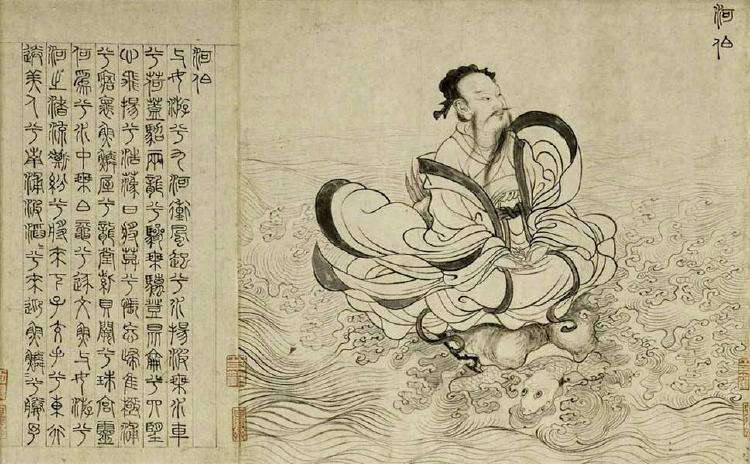 河伯
河伯
与女游兮九河衝風起兮水揚波乘水車
兮荷蓋駕兩龍兮驂螭登昆侖兮四望
心飛揚兮浩蕩日將莫兮悵忘歸惟極浦
兮寤懷魚鱗屋兮龍堂紫貝闕兮珠宮靈
何爲兮水中乘白黿兮逐文魚与女游兮
河之渚流澌紛兮將來下子交手兮東行
送美人兮南浦波滔兮來迎魚鱗兮媵予